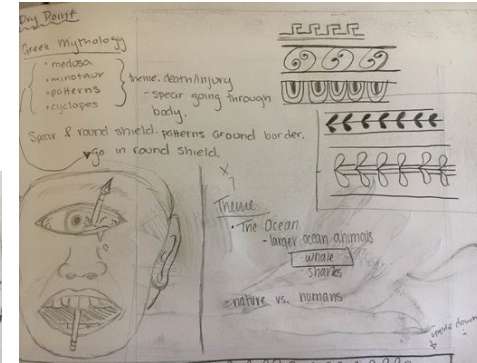 Dry Point
Greek Mythology
• medusa
• minotaur
• patterns
• cyclopes
theme. death/injury
- spear going through
body.
Spear & round shield. patterns around border.
go in round shield.
Theme
• The Ocean
- larger ocean animals
whale
sharks
nature vs. humans
upside down